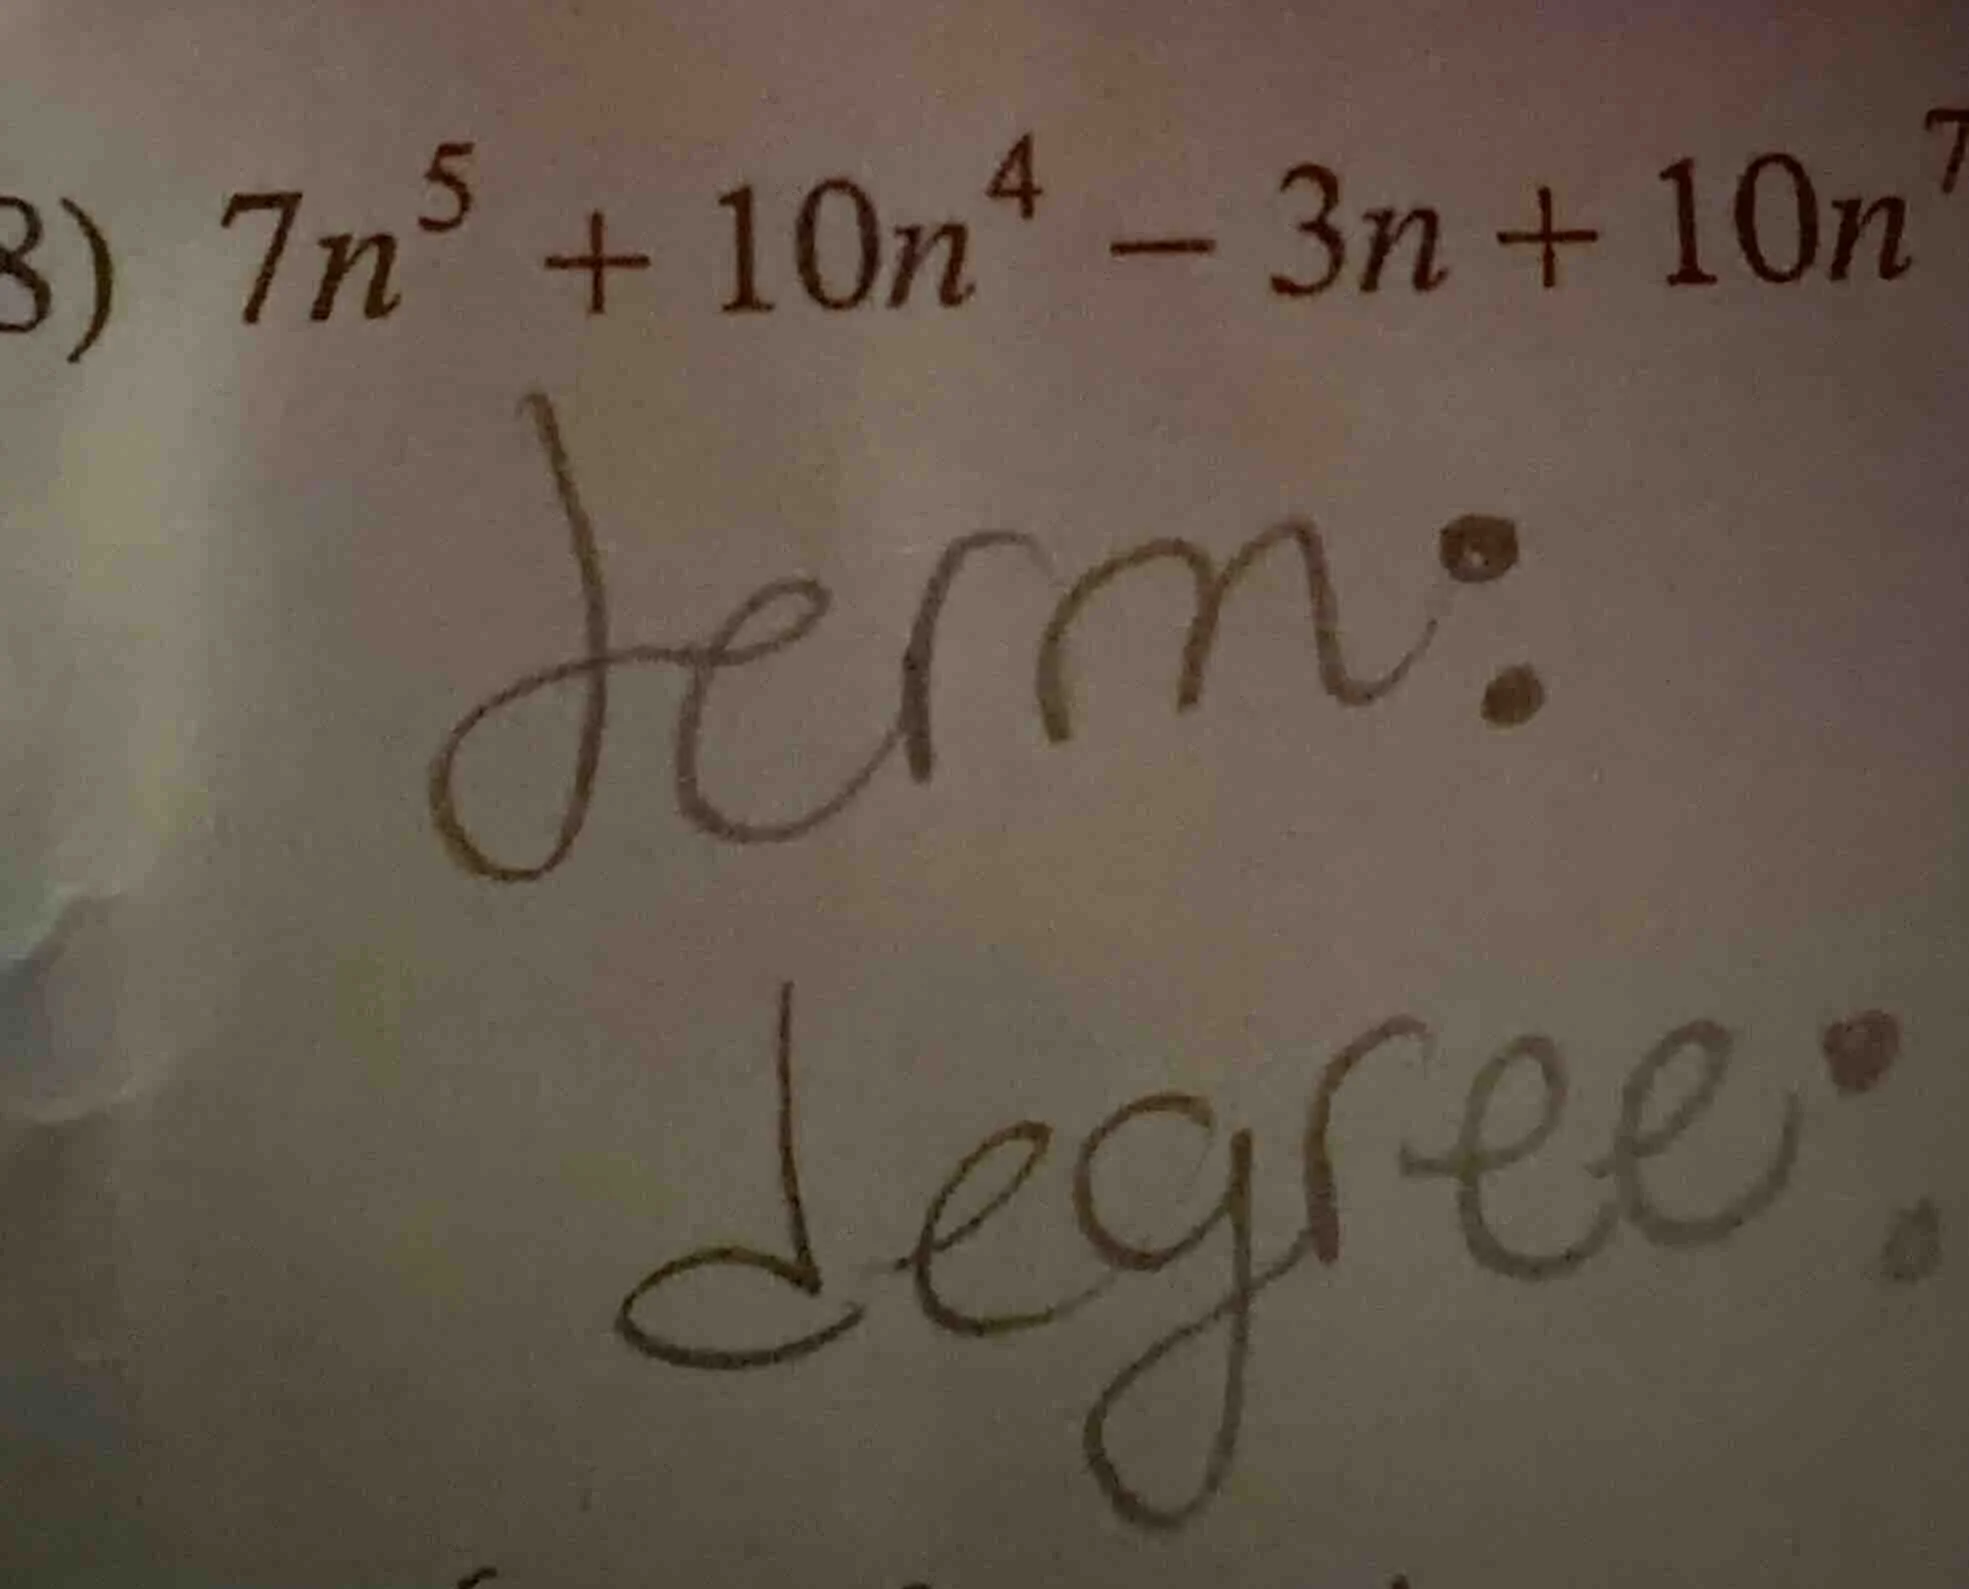 8) 7n⁵ + 10n⁴ − 3n + 10n⁷
term:
degree: